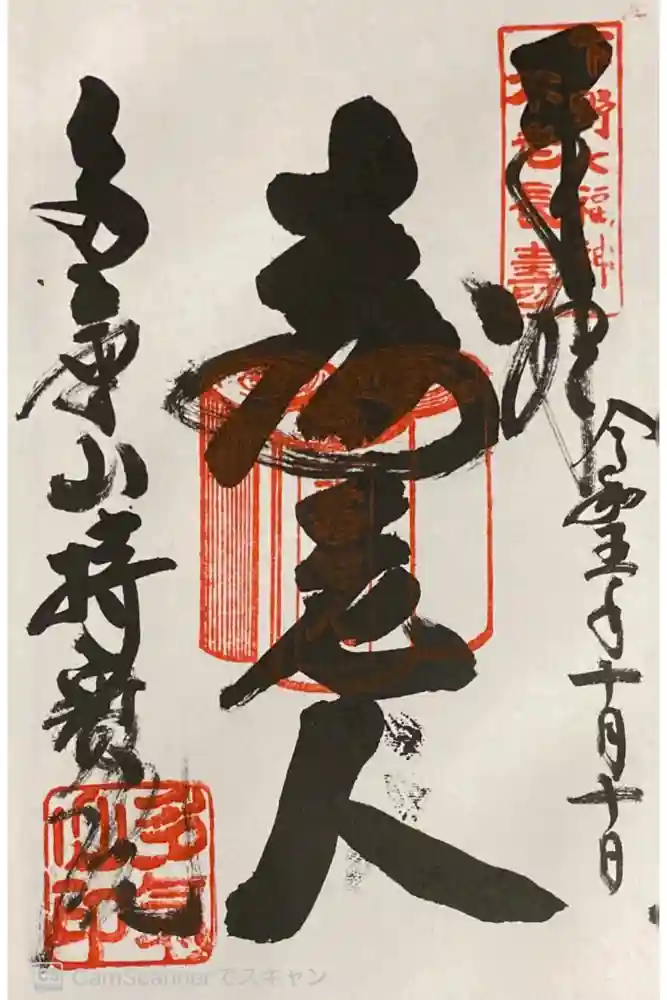 奉拝
下野七福神
不老長壽
十月十日
壽老人
多氣山持寳院
多氣山印
CamScannerでスキャン